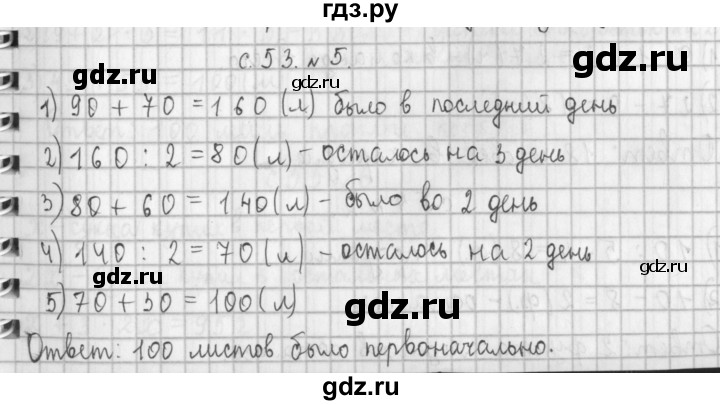 гдз.ру
с. 53. № 5.
gdz.ru gdz.ru
1) 90 + 70 = 160 (л) было в последний день
2) 160 : 2 = 80 (л) - осталось на 3 день
gdz.ru gdz.ru
3) 80 + 60 = 140 (л) - было во 2 день
4) 140 : 2 = 70 (л) - осталось на 2 день
gdz.ru gdz.ru
5) 70 + 30 = 100 (л)
gdz.ru
Ответ: 100 листов было первоначально.
gdz.ru